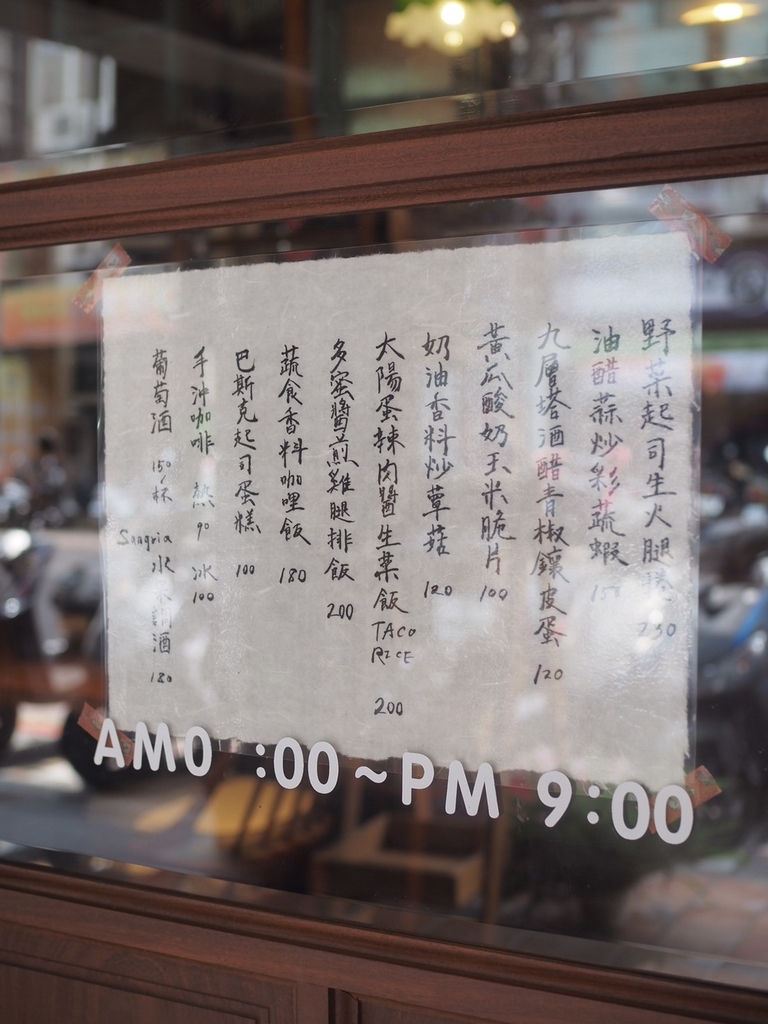 野菜起司生火腿捲 230
油醋蒜炒彩蔬蝦 150
九層塔酒醋青椒鑲皮蛋 120
黃瓜酸奶玉米脆片 100
奶油香料炒蕈菇 120
太陽蛋辣肉醬生菜飯 TACO RICE 200
多蜜醬煎雞腿排飯 200
蔬食香料咖哩飯 180
巴斯克起司蛋糕 100
手沖咖啡 熱 90 冰 100
葡萄酒 150/杯
Sangria 水果調酒 180
AM0 :00~PM 9:00